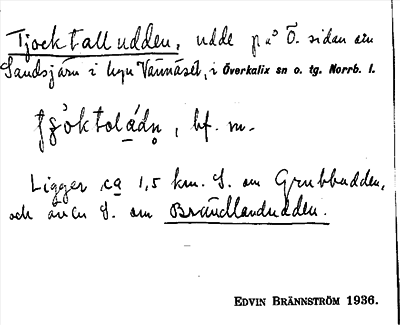 Tjocktalludden, udde på Ö. sidan av
Sandsjärn i byn Vännäset, i Överkalix sn o. tg. Norrb. l.
bf. m.
Ligger ca 1,5 km. S. om Grubbudden,
och även S. om Brändlandudden.
EDVIN BRÄNNSTRÖM 1936.